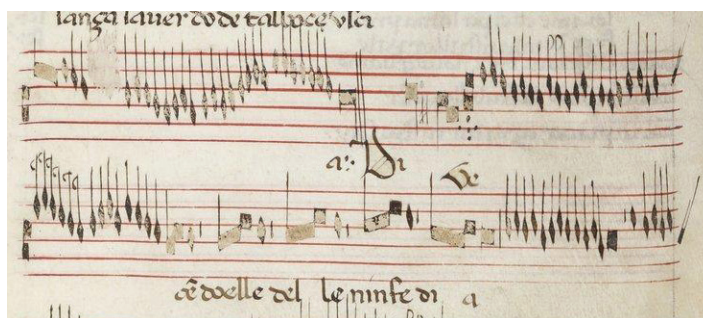 langa lauer do de tal boce vsci
a: Di ve
cē doelle del le ninfe di a